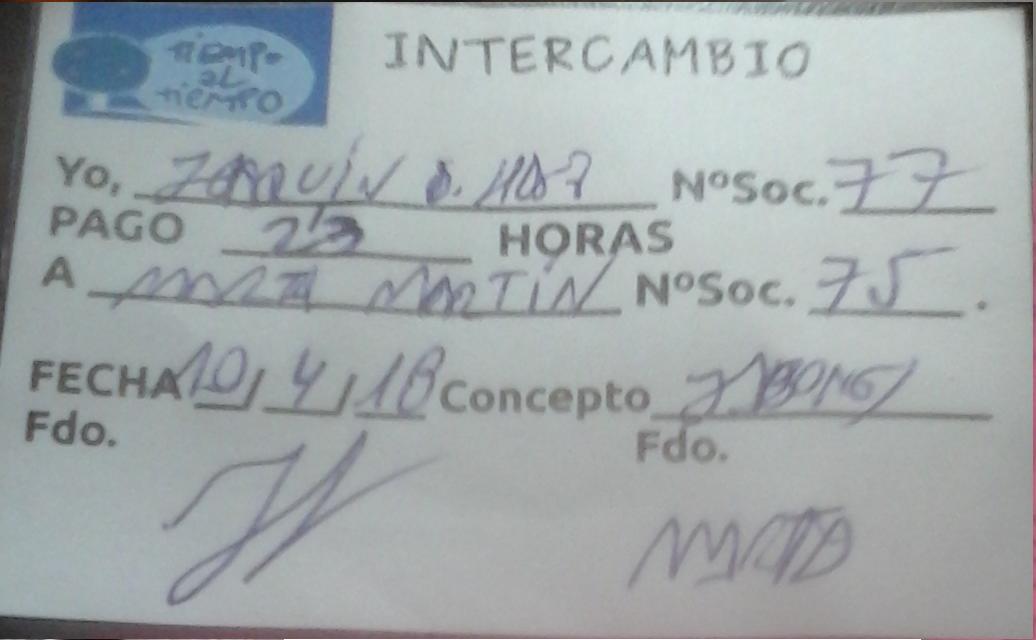 TIEMPO
AL
TIEMPO
INTERCAMBIO
Yo, JOAQUÍN NºSoc. 77
PAGO 2'3 HORAS
A MARTA MARTÍN NºSoc. 75.
FECHA 10/4/18 Concepto JABONES
Fdo. Fdo.
MARTA